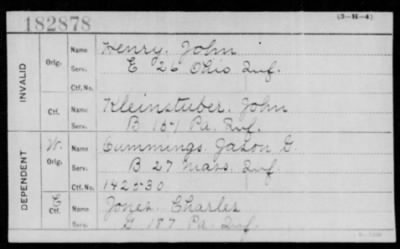 182878
(3-H-4)
INVALID
Orig. Name Henry, John
Serv. E 26 Ohio Inf.
Ctf. No.
Ctf. Name Kleinstuber, John
Serv. B 151 Pa. Inf.
DEPENDENT
W. Orig. Name Cummings, Jason D.
Serv. B 27 Mass. Inf.
Ctf. No. 142530
Ctf. Name Jones, Charles
Serv. G 187 Pa. Inf.